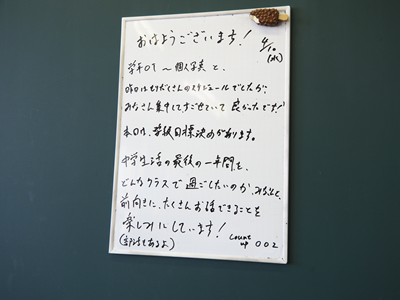 おはようございます!
4/10
(水)
学年OT〜個人写真と、
昨日はもりだくさんのスケジュールでしたが、
みなさん集中してすごせていて良かったです!
本日は、学級目標決めがあります。
中学生活の最後の一年間を、
どんなクラスで過ごしたいのか、みなさんと、
前向きに、たくさんお話できることを
楽しみにしています!
(部活もあるよ)
count
up 002